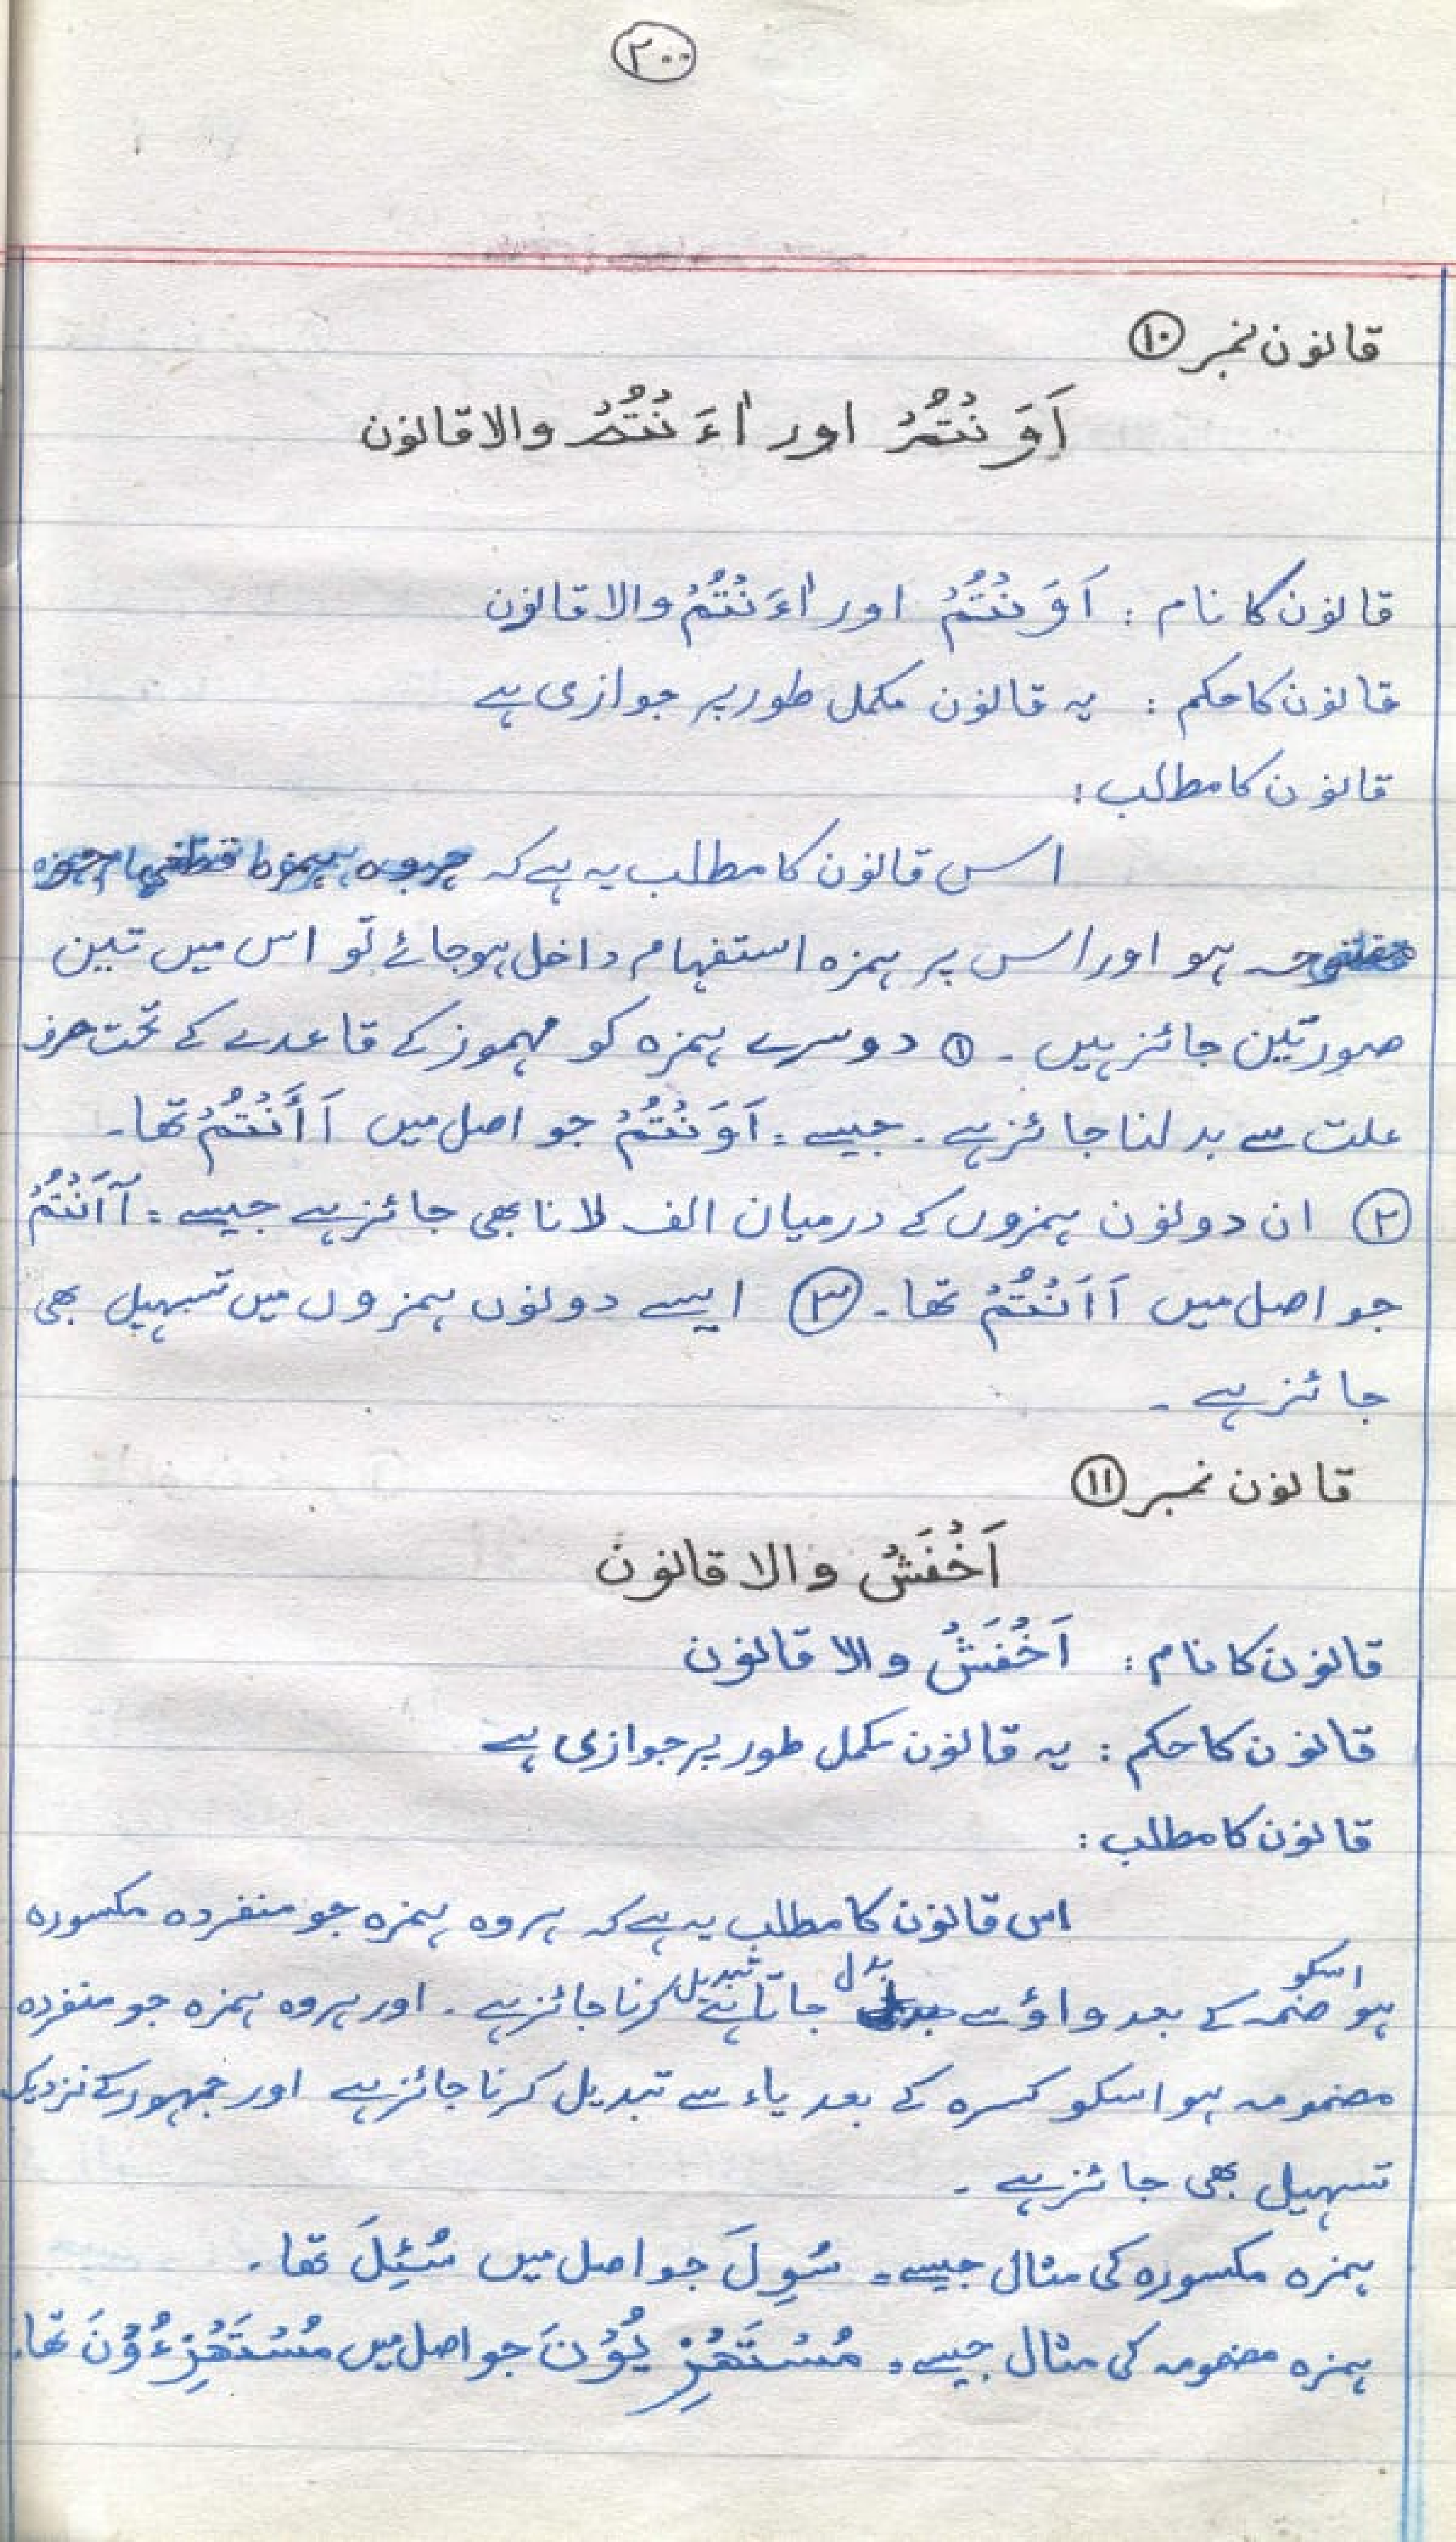 ۲۰۰
قانون نمبر ۱۰
اَوَنْتُمْ اور اٰءَنْتُمْ والا قانون
قانون کا نام : اَوَنْتُمْ اور اٰءَنْتُمْ والا قانون
قانون کا حکم : یہ قانون مکمل طور پر جوازی ہے
قانون کا مطلب :
اس قانون کا مطلب یہ ہے کہ ہر وہ ہمزہ قطعی جو
مفتوحہ ہو اور اس پر ہمزہ استفہام داخل ہو جائے تو اس میں تین
صورتیں جائز ہیں ۔ ① دوسرے ہمزہ کو مہموز کے قاعدے کے تحت حرف
علت سے بدلنا جائز ہے ۔ جیسے : اَوَنْتُمْ جو اصل میں اَأَنْتُمْ تھا ۔
② ان دونوں ہمزوں کے درمیان الف لانا بھی جائز ہے جیسے : آاَنْتُمْ
جو اصل میں اَاَنْتُمْ تھا ۔ ③ ایسے دونوں ہمزوں میں تسہیل بھی
جائز ہے ۔
قانون نمبر ۱۱
اَخْفَشْ والا قانون
قانون کا نام : اَخْفَشْ والا قانون
قانون کا حکم : یہ قانون مکمل طور پر جوازی ہے
قانون کا مطلب :
اس قانون کا مطلب یہ ہے کہ ہر وہ ہمزہ جو منفردہ مکسورہ
ہو اسکو ضمہ کے بعد واؤ سے بدل جاتا ہے تبدیل کرنا جائز ہے ۔ اور ہر وہ ہمزہ جو منفردہ
مضمومہ ہو اسکو کسرہ کے بعد یاء سے تبدیل کرنا جائز ہے اور جمہور کے نزدیک
تسہیل بھی جائز ہے ۔
ہمزہ مکسورہ کی مثال جیسے : سُوِلَ جو اصل میں سُئِلَ تھا ۔
ہمزہ مضمومہ کی مثال جیسے : مُسْتَهْزِيُوْنَ جو اصل میں مُسْتَهْزِءُوْنَ تھا ۔